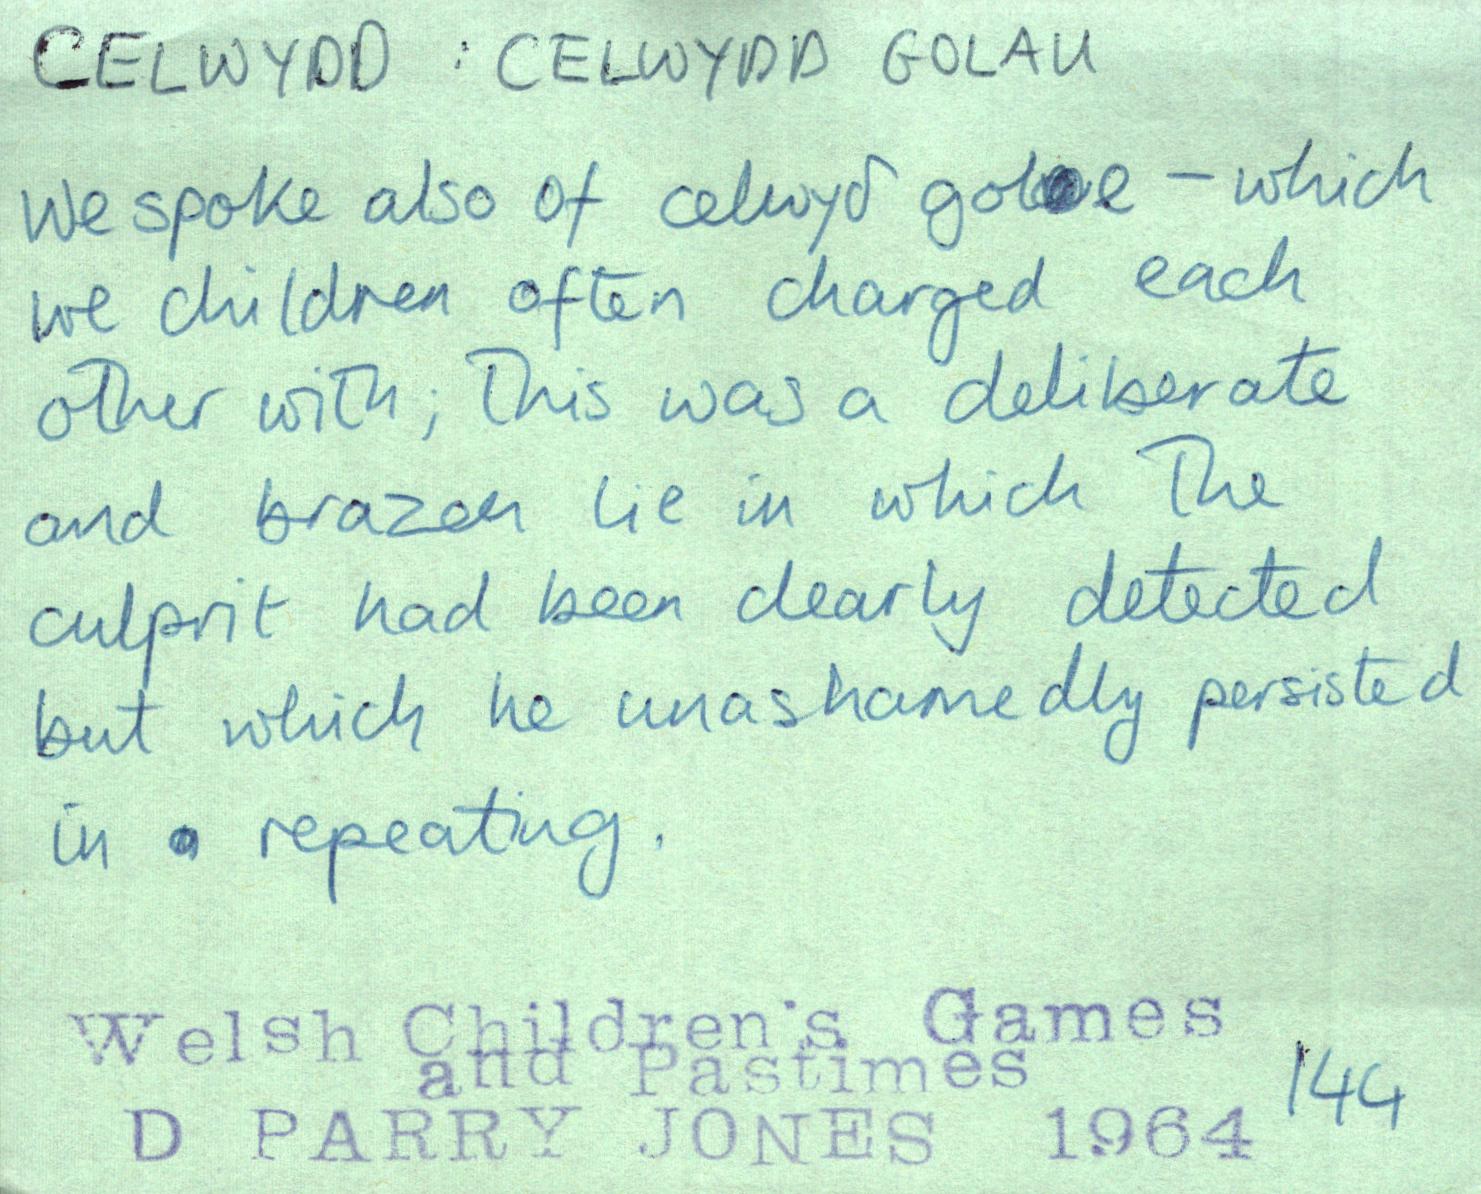 CELWYDD : CELWYDD GOLAU
We spoke also of celwyδ gole – which
we children often charged each
other with; This was a deliberate
and brazen lie in which The
culprit had been clearly detected
but which he unashamedly persisted
in repeating.
Welsh Children's Games
and Pastimes
D PARRY JONES 1964 144